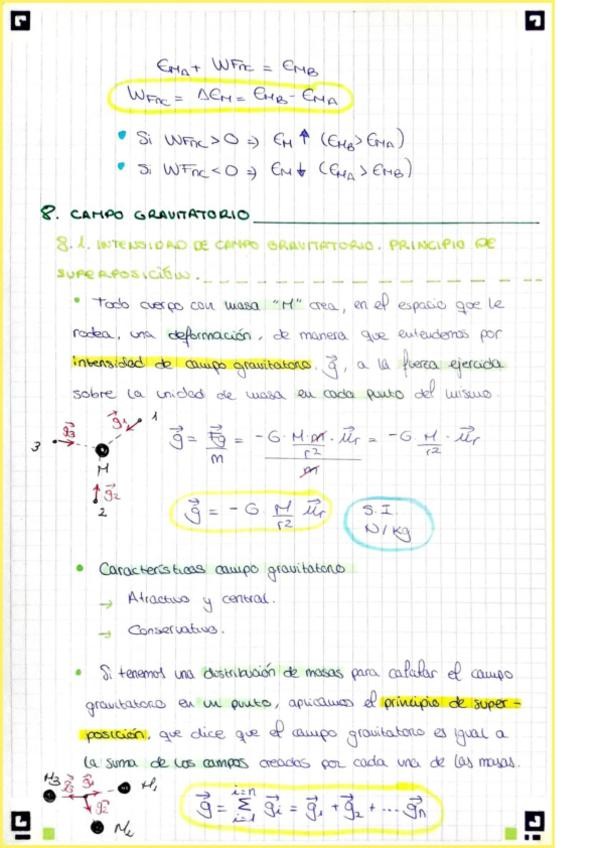 E_MA + WFnc = E_MB
WFnc = ΔE_M = E_MB - E_MA
• Si WFnc > 0 ⇒ E_M ↑ (E_MB > E_MA)
• Si WFnc < 0 ⇒ E_M ↓ (E_MA > E_MB)
8. CAMPO GRAVITATORIO
8.1. INTENSIDAD DE CAMPO GRAVITATORIO. PRINCIPIO DE
SUPERPOSICIÓN.
• Todo cuerpo con masa "M" crea, en el espacio que le
rodea, una deformación, de manera que entendemos por
intensidad de campo gravitatorio, g⃗, a la fuerza ejercida
sobre la unidad de masa en cada punto del mismo.
3 g⃗3 g⃗1 1
M
g⃗2
2
g⃗ = F⃗g/m = (-G · M·m/r² · u⃗r)/m = -G M/r² · u⃗r
g⃗ = -G M/r² u⃗r
S.I.
N/kg
• Características campo gravitatorio
→ Atractivo y central.
→ Conservativo.
• Si tenemos una distribución de masas para calcular el campo
gravitatorio en un punto, aplicamos el principio de super-
posición, que dice que el campo gravitatorio es igual a
la suma de los campos creados por cada una de las masas.
M3 g⃗3 g⃗1 M1
g⃗2
M2
g⃗ = Σ i=1 i=n g⃗i = g⃗1 + g⃗2 + ... g⃗n